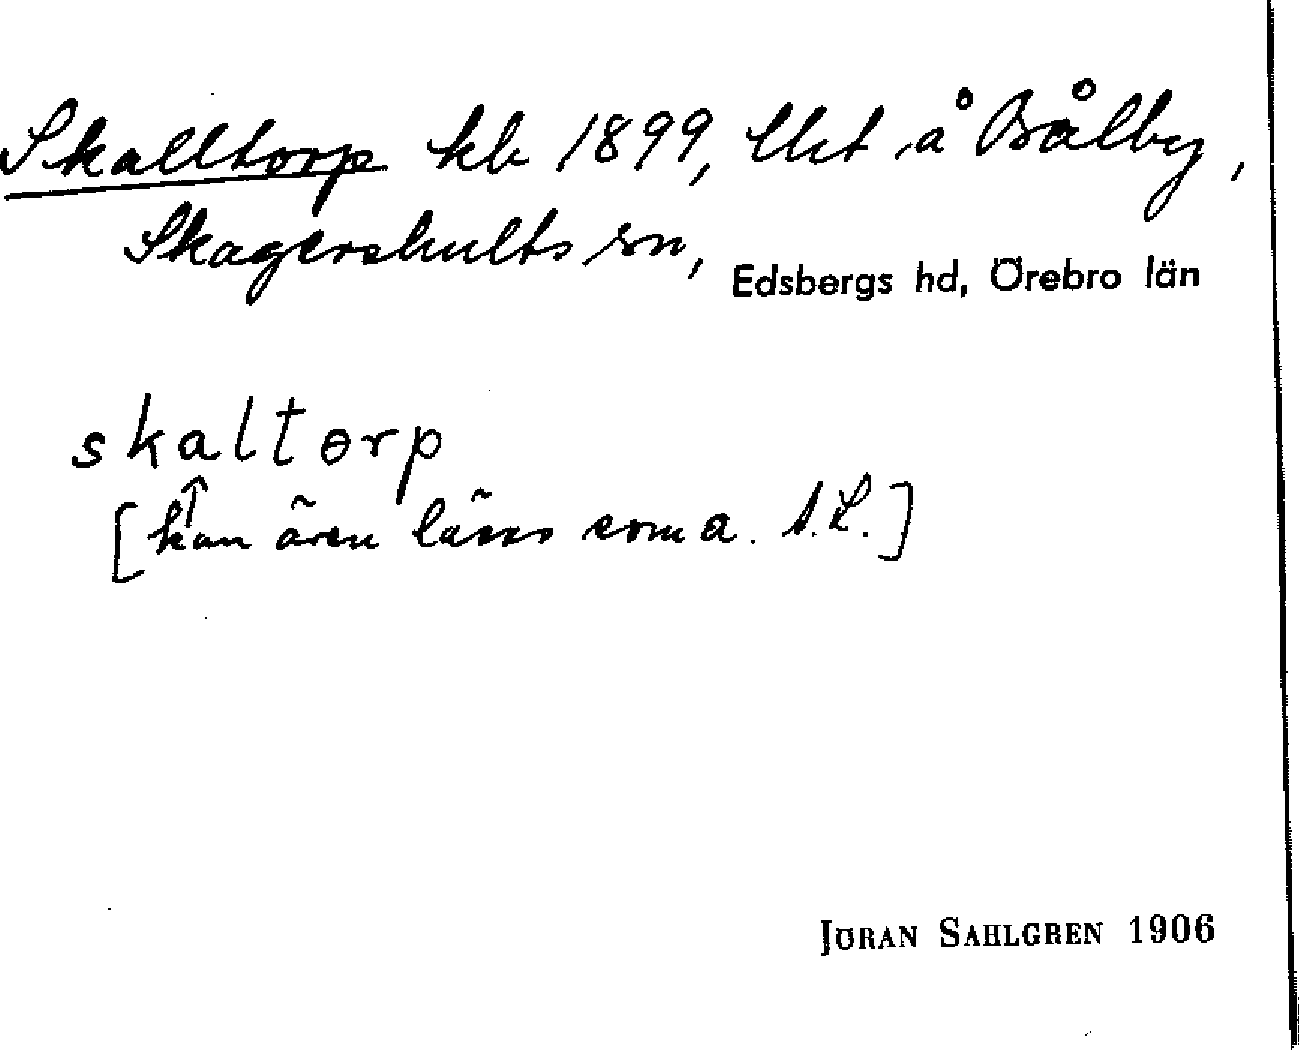 Skalltorp kb 1899, lht å Bålby,
Skagershults sn, Edsbergs hd, Örebro län
skaltɵrp
[kan även läsas som a. S.L.]
JÖRAN SAHLGREN 1906